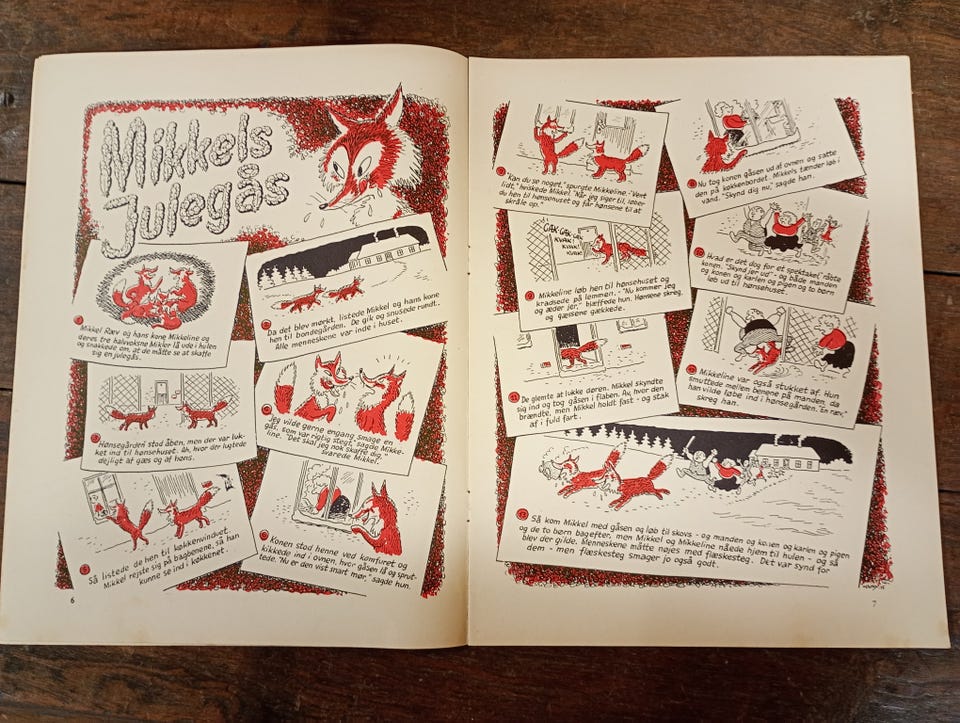 Mikkels
Julegås
1 Mikkel Ræv og hans kone Mikkeline og
deres tre halvvoksne Mikler lå ude i hulen
og snakkede om, at de måtte se at skaffe
sig en julegås.
2 Da det blev mørkt, listede Mikkel og hans kone
hen til bondegården. De gik og snusede rundt.
Alle menneskene var inde i huset.
3 Hønsegården stod åben, men der var luk-
ket ind til hønsehuset. Ah, hvor der lugtede
dejligt af gæs og af høns.
4 "Jeg vilde gerne engang smage en
gås, som var rigtig stegt," sagde Mikke-
line. "Det skal jeg nok skaffe dig,"
svarede Mikkel.
5 Så listede de hen til køkkenvinduet.
Mikkel rejste sig på bagbenene, så han
kunne se ind i køkkenet.
6 Konen stod henne ved komfuret og
kikkede ind i ovnen, hvor gåsen lå og sprut-
tede. "Nu er den vist snart mør," sagde hun.
6
"Kan du se noget," spurgte Mikkeline. - "Vent
lidt," hviskede Mikkel. "Når jeg siger til, løber
du hen til hønsehuset og får hønsene til at
skråle op."
8 Nu tog konen gåsen ud af ovnen og satte
den på køkkenbordet. Mikkels tænder løb i
vand. "Skynd dig nu," sagde han.
GÆK-GÆK-
KVÆK!
KVÆK!
KVÆK!
9 Mikkeline løb hen til hønsehuset og
kradsede på lemmen. - "Nu kommer jeg
og æder jer," bjæffede hun. Hønsene skreg,
og gæssene gækkede.
10 Hvad er det dog for et spektakel," råbte
konen. "Skynd jer ud" - og både manden
og konen og karlen og pigen og to børn
løb ud til hønsehuset.
11 De glemte at lukke døren. Mikkel skyndte
sig ind og tog gåsen i flaben. Av, hvor den
brændte, men Mikkel holdt fast - og stak
af i fuld fart.
12 Mikkeline var også stukket af. Hun
smuttede mellem benene på manden, da
han vilde løbe ind i hønsegården. "En ræv,"
skreg han.
13 Så kom Mikkel med gåsen og løb til skovs - og manden og konen og karlen og pigen
og de to børn bagefter, men Mikkel og Mikkeline nåede hjem til hulen - og så
blev der gilde. Menneskene måtte nøjes med flæskesteg. Det var synd for
dem - men flæskesteg smager jo også godt.
7